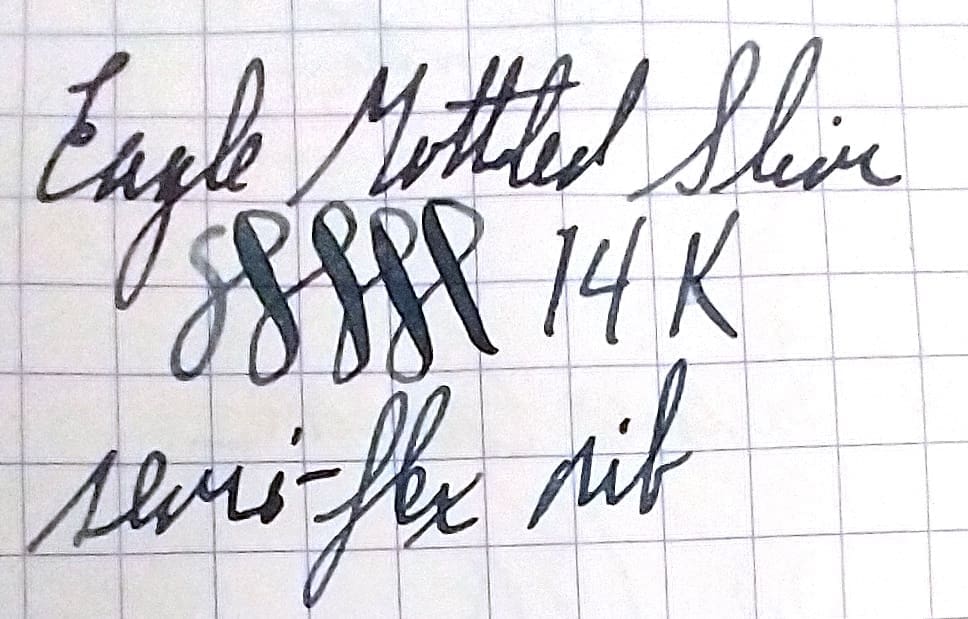 Eagle Mottled Slim
14K
semi-flex nib